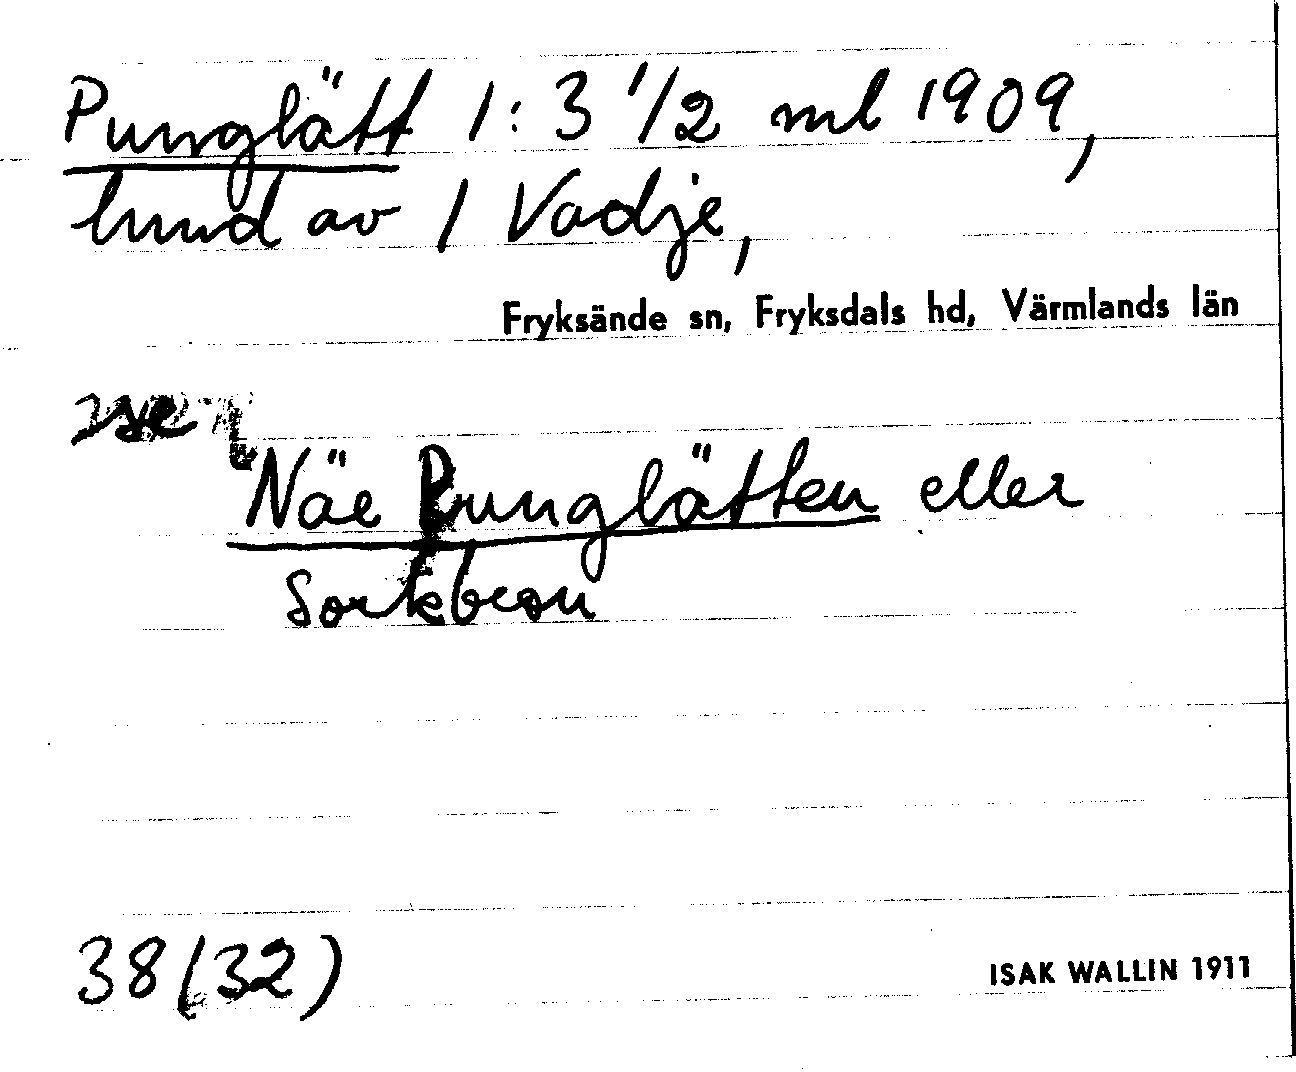 Punglätt 1:3 1/2 ml 1909,
lund av 1 Vadje,
Fryksände sn, Fryksdals hd, Värmlands län
se
Näe Punglätten eller
Sorkbron
38(32)
ISAK WALLIN 1911